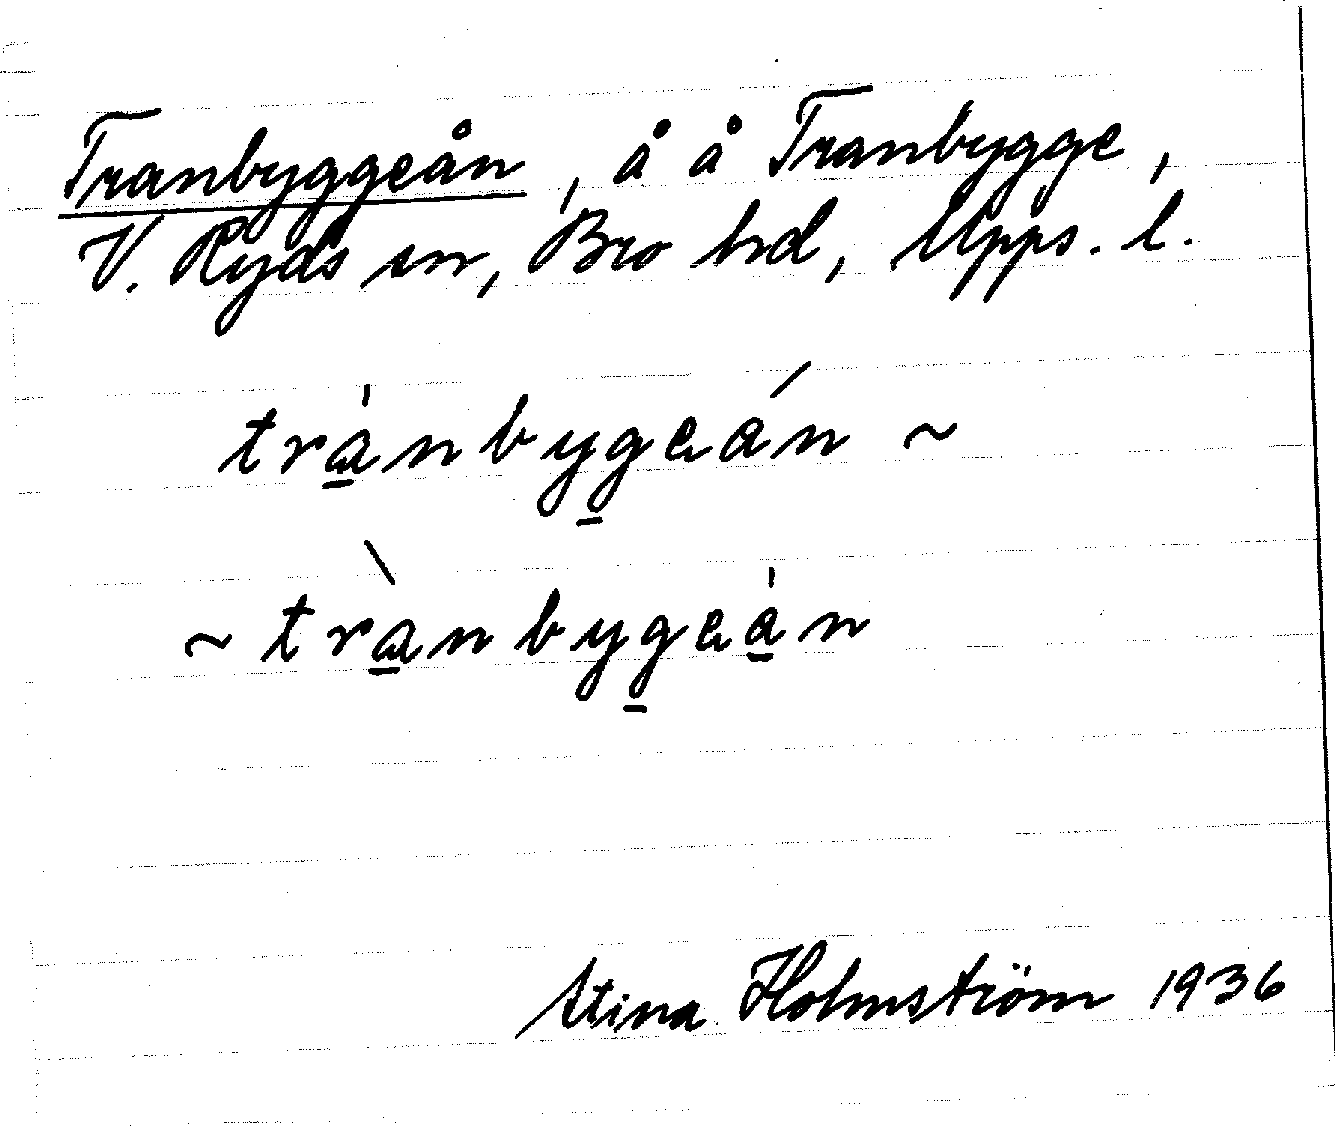 Tranbyggeån, å å Tranbygge,
V. Ryds sn, Bro hd, Upps. l.
tra̲̍nbyg̲eán ~
~ trà̲nbyg̲ea̲̍n
Stina Holmström 1936